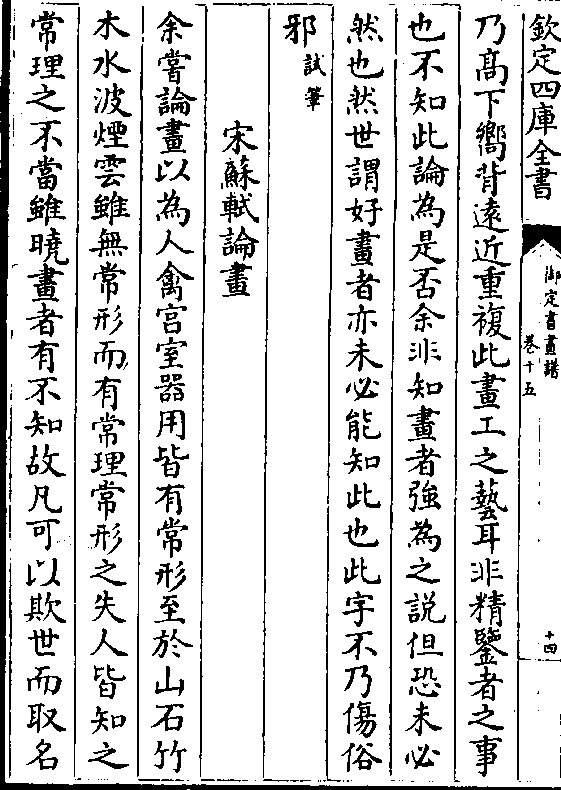 欽定四庫全書
御定書畫譜
卷十五
十四
乃髙下嚮背遠近重複此畫工之藝耳非精鑒者之事
也不知此論為是否余非知畫者強為之説但恐未必
然也然世謂好畫者亦未必能知此也此字不乃傷俗
邪試筆
宋蘇軾論畫
余嘗論畫以為人禽宫室器用皆有常形至於山石竹
木水波煙雲雖無常形而有常理常形之失人皆知之
常理之不當雖曉畫者有不知故凡可以欺世而取名